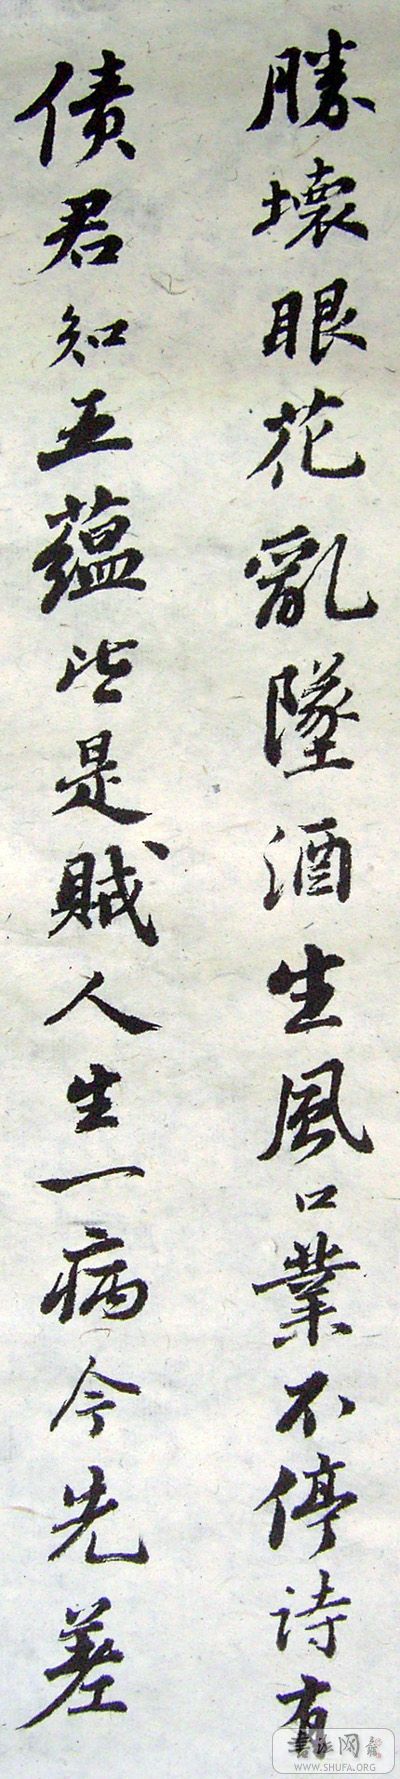 勝壞眼花亂墜酒生風口業不停诗有
债君知五蕴皆是贼人生一病今先差
書法网
WWW.SHUFA.ORG